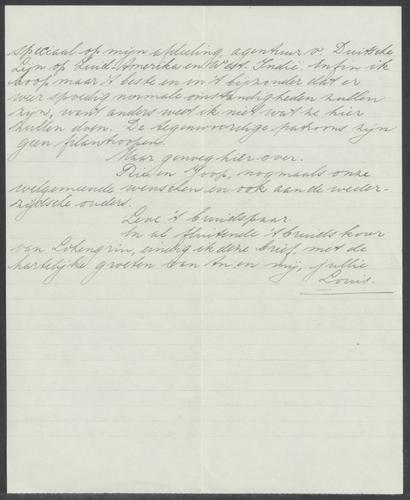 speciaal op mijn afdeeling, agentuur v. Duitsche
Lijn op Zuid-Amerika en West-Indië. Enfin ik
hoop maar 't beste en in 't bijzonder dat er
weer spoedig normale omstandigheden zullen
zijn, want anders weet ik niet wat ze hier
zullen doen. De tegenwoordige patroons zijn
geen filantropen.
Maar genoeg hier over.
en Joop, nogmaals onze
welgemeende wenschen en ook aan de weder-
zijdsche ouders.
Leve 't bruidspaar
In al fluitende 't bruidskoor
van Lohengrin, eindig ik deze brief, met de
hartelijke groeten van An en mij, jullie
Louis.